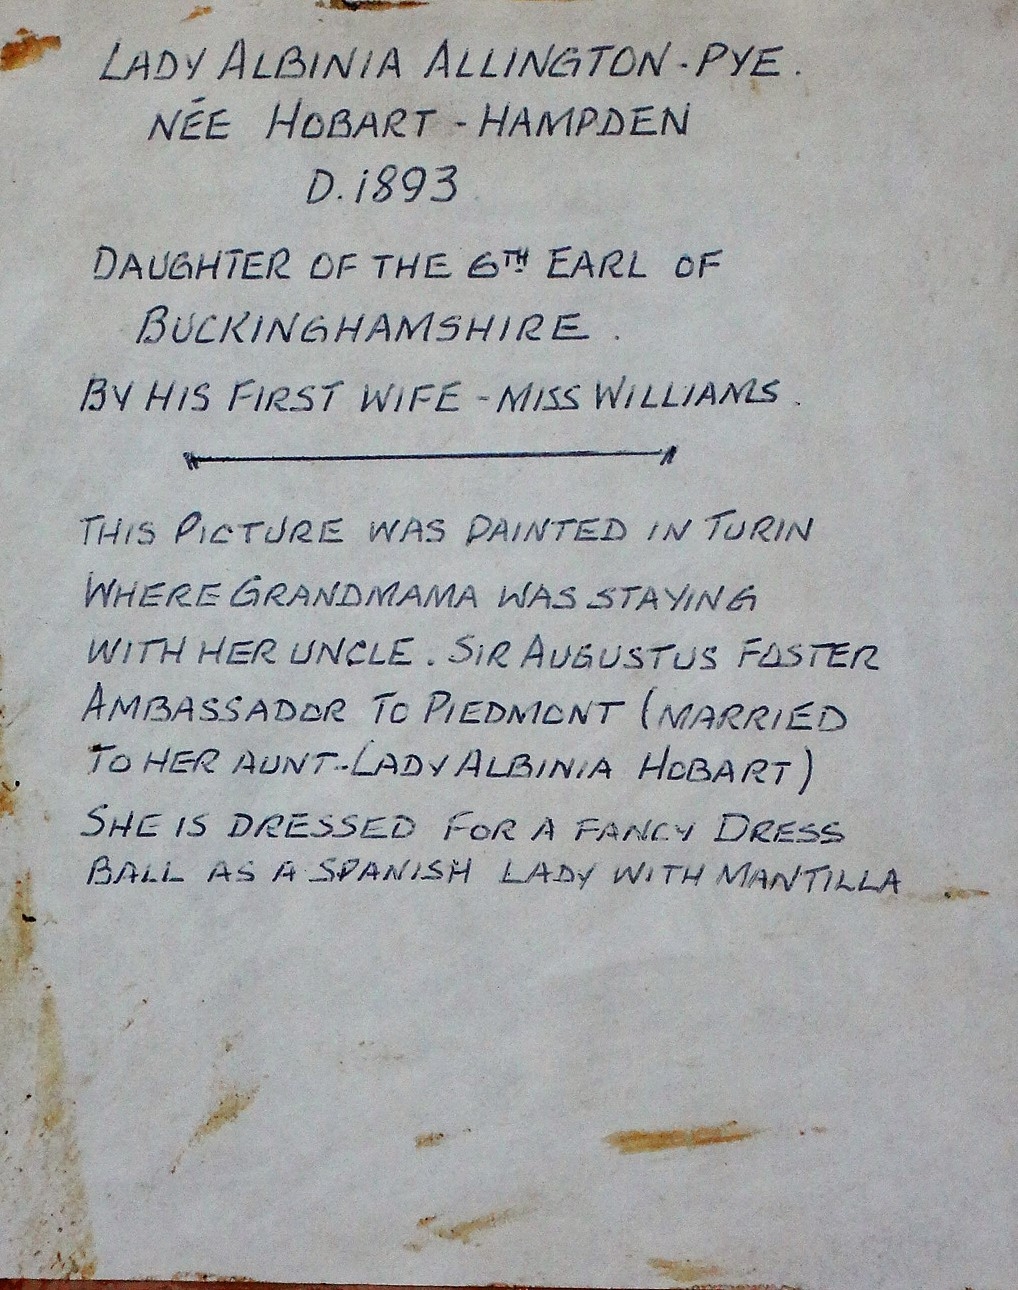 LADY ALBINIA ALLINGTON-PYE.
NÉE HOBART-HAMPDEN
D.1893
DAUGHTER OF THE 6TH EARL OF
BUCKINGHAMSHIRE.
BY HIS FIRST WIFE - MISS WILLIAMS.
THIS PICTURE WAS PAINTED IN TURIN
WHERE GRANDMAMA WAS STAYING
WITH HER UNCLE. SIR AUGUSTUS FOSTER
AMBASSADOR TO PIEDMONT (MARRIED
TO HER AUNT-LADY ALBINIA HOBART)
SHE IS DRESSED FOR A FANCY DRESS
BALL AS A SPANISH LADY WITH MANTILLA